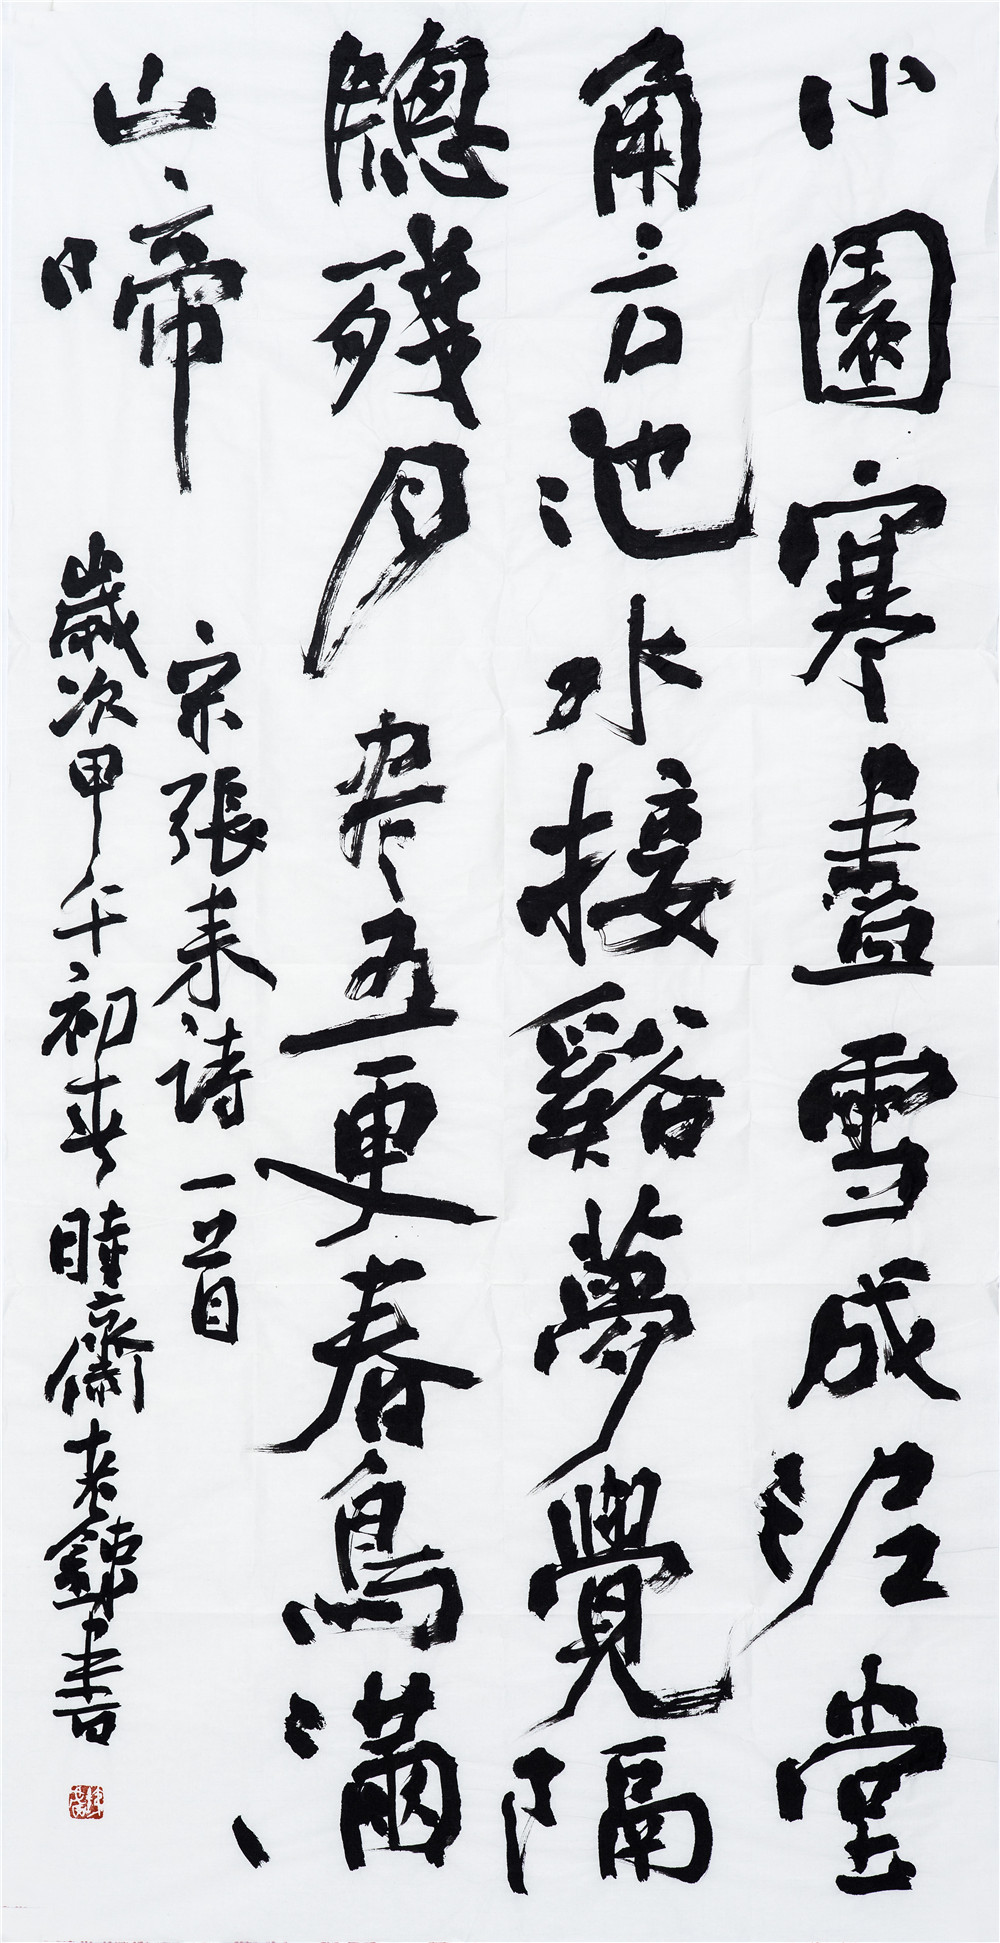 小園寒盡雪成泥堂
角方池水接谿夢覺隔
牕殘月尽五更春鳥滿
山啼
宋張耒詩一首
歲次甲午初春齋老書